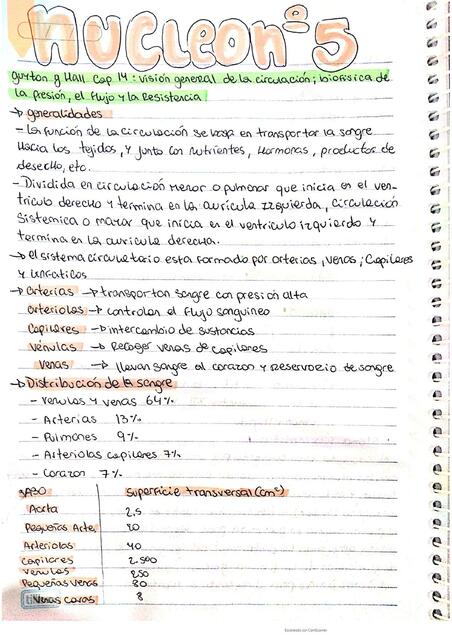 NUCLEO nº 5
guyton y Hall Cap 14: visión general de la circulación; biofísica de
la presión, el flujo y la Resistencia
→ generalidades
- La función de la circulación se basa en transportar la sangre
Hacia los tejidos, y junto con nutrientes, Hormonas, productos de
desecho, etc.
- Dividida en circulación menor o pulmonar que inicia en el ven-
triculo derecho y termina en la auricula izquierda, circulación
Sistemica o mayor que inicia en el ventriculo izquierdo y
termina en la auricula derecha.
→ el sistema circulatorio esta formado por arterias, venas, Capilares
y linfaticos
→ arterias → transportan sangre con presión alta
arteriolas → controlan el flujo sanguineo
Capilares → intercambio de sustancias
Vénulas → Recoger venas de capilares
Venas → llevan sangre al corazon y Reservorio de sangre
→ Distribución de la sangre
- Venulas y venas 64%
- Arterias 13%
- Pulmones 9%
- Arteriolas capilares 7%
- Corazon 7%
VASO Superficie transversal (cm²)
Aorta 2,5
Pequeñas Arte. 20
Arteriolas 40
Capilares 2.500
Venulas 250
Pequeñas venas 80
Venas cavas 8
Escaneado con CamScanner